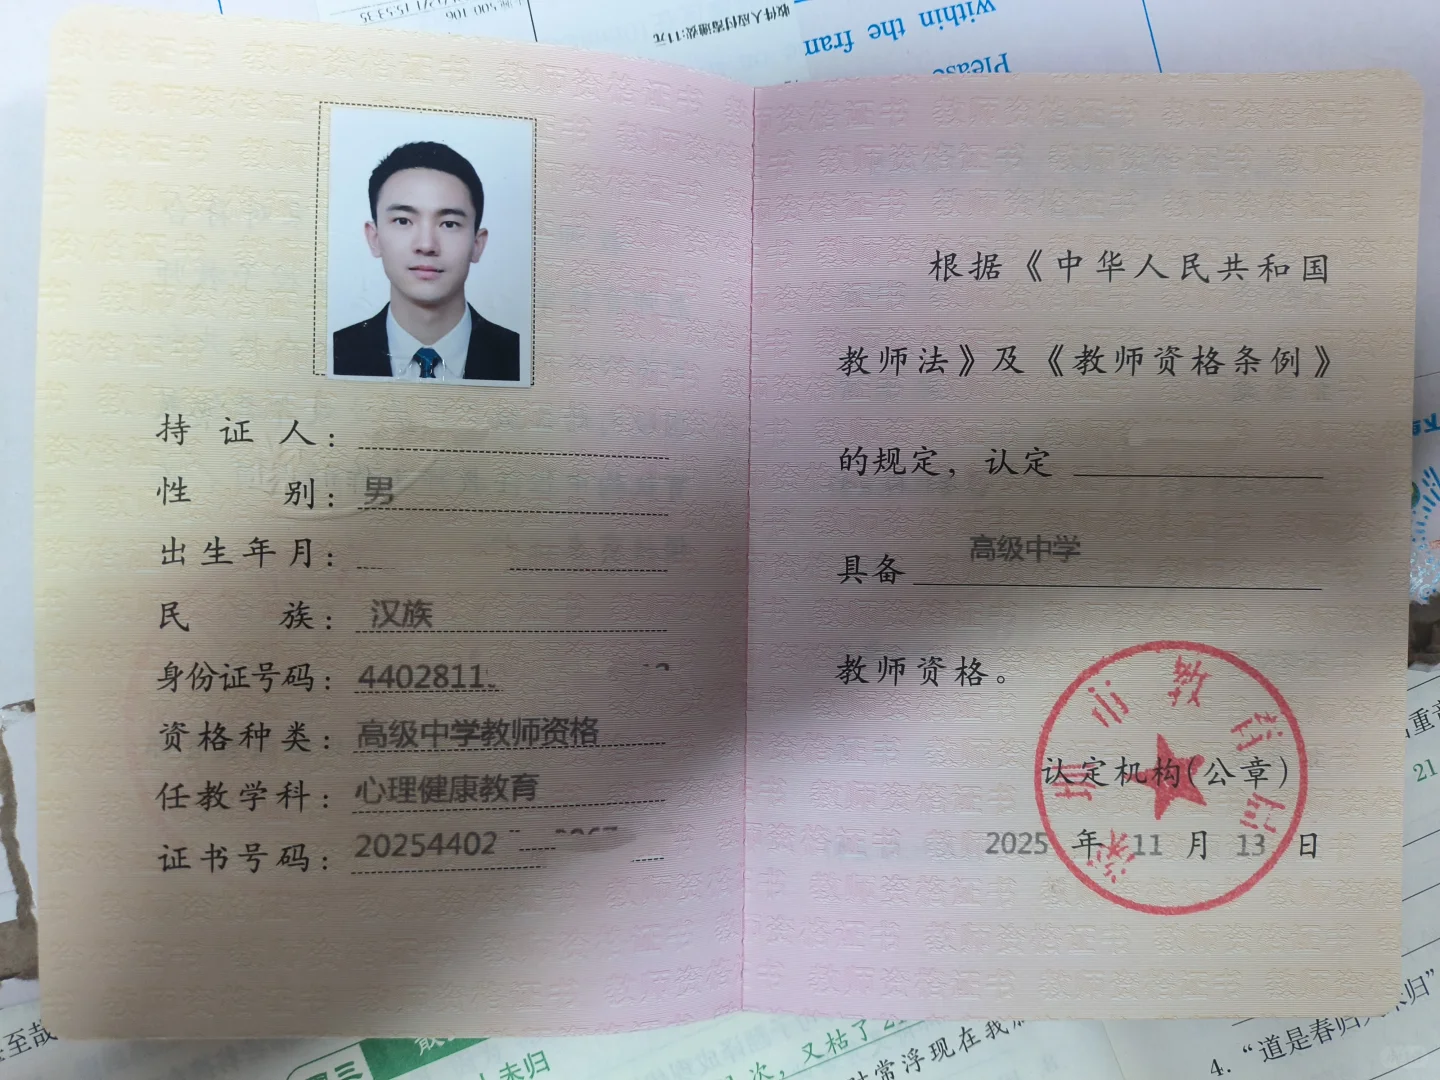 收件人应付寄递费:11元
within the fran
Please
持证人：
性别：男
出生年月：
民族：汉族
身份证号码：4402811
资格种类：高级中学教师资格
任教学科：心理健康教育
证书号码：20254402
根据《中华人民共和国
教师法》及《教师资格条例》
的规定，认定
具备 高级中学
教师资格。
认定机构(公章)
2025 年 11 月 13 日
21
至哉
未归
次，又枯了
常浮现在我
4. “道是春归